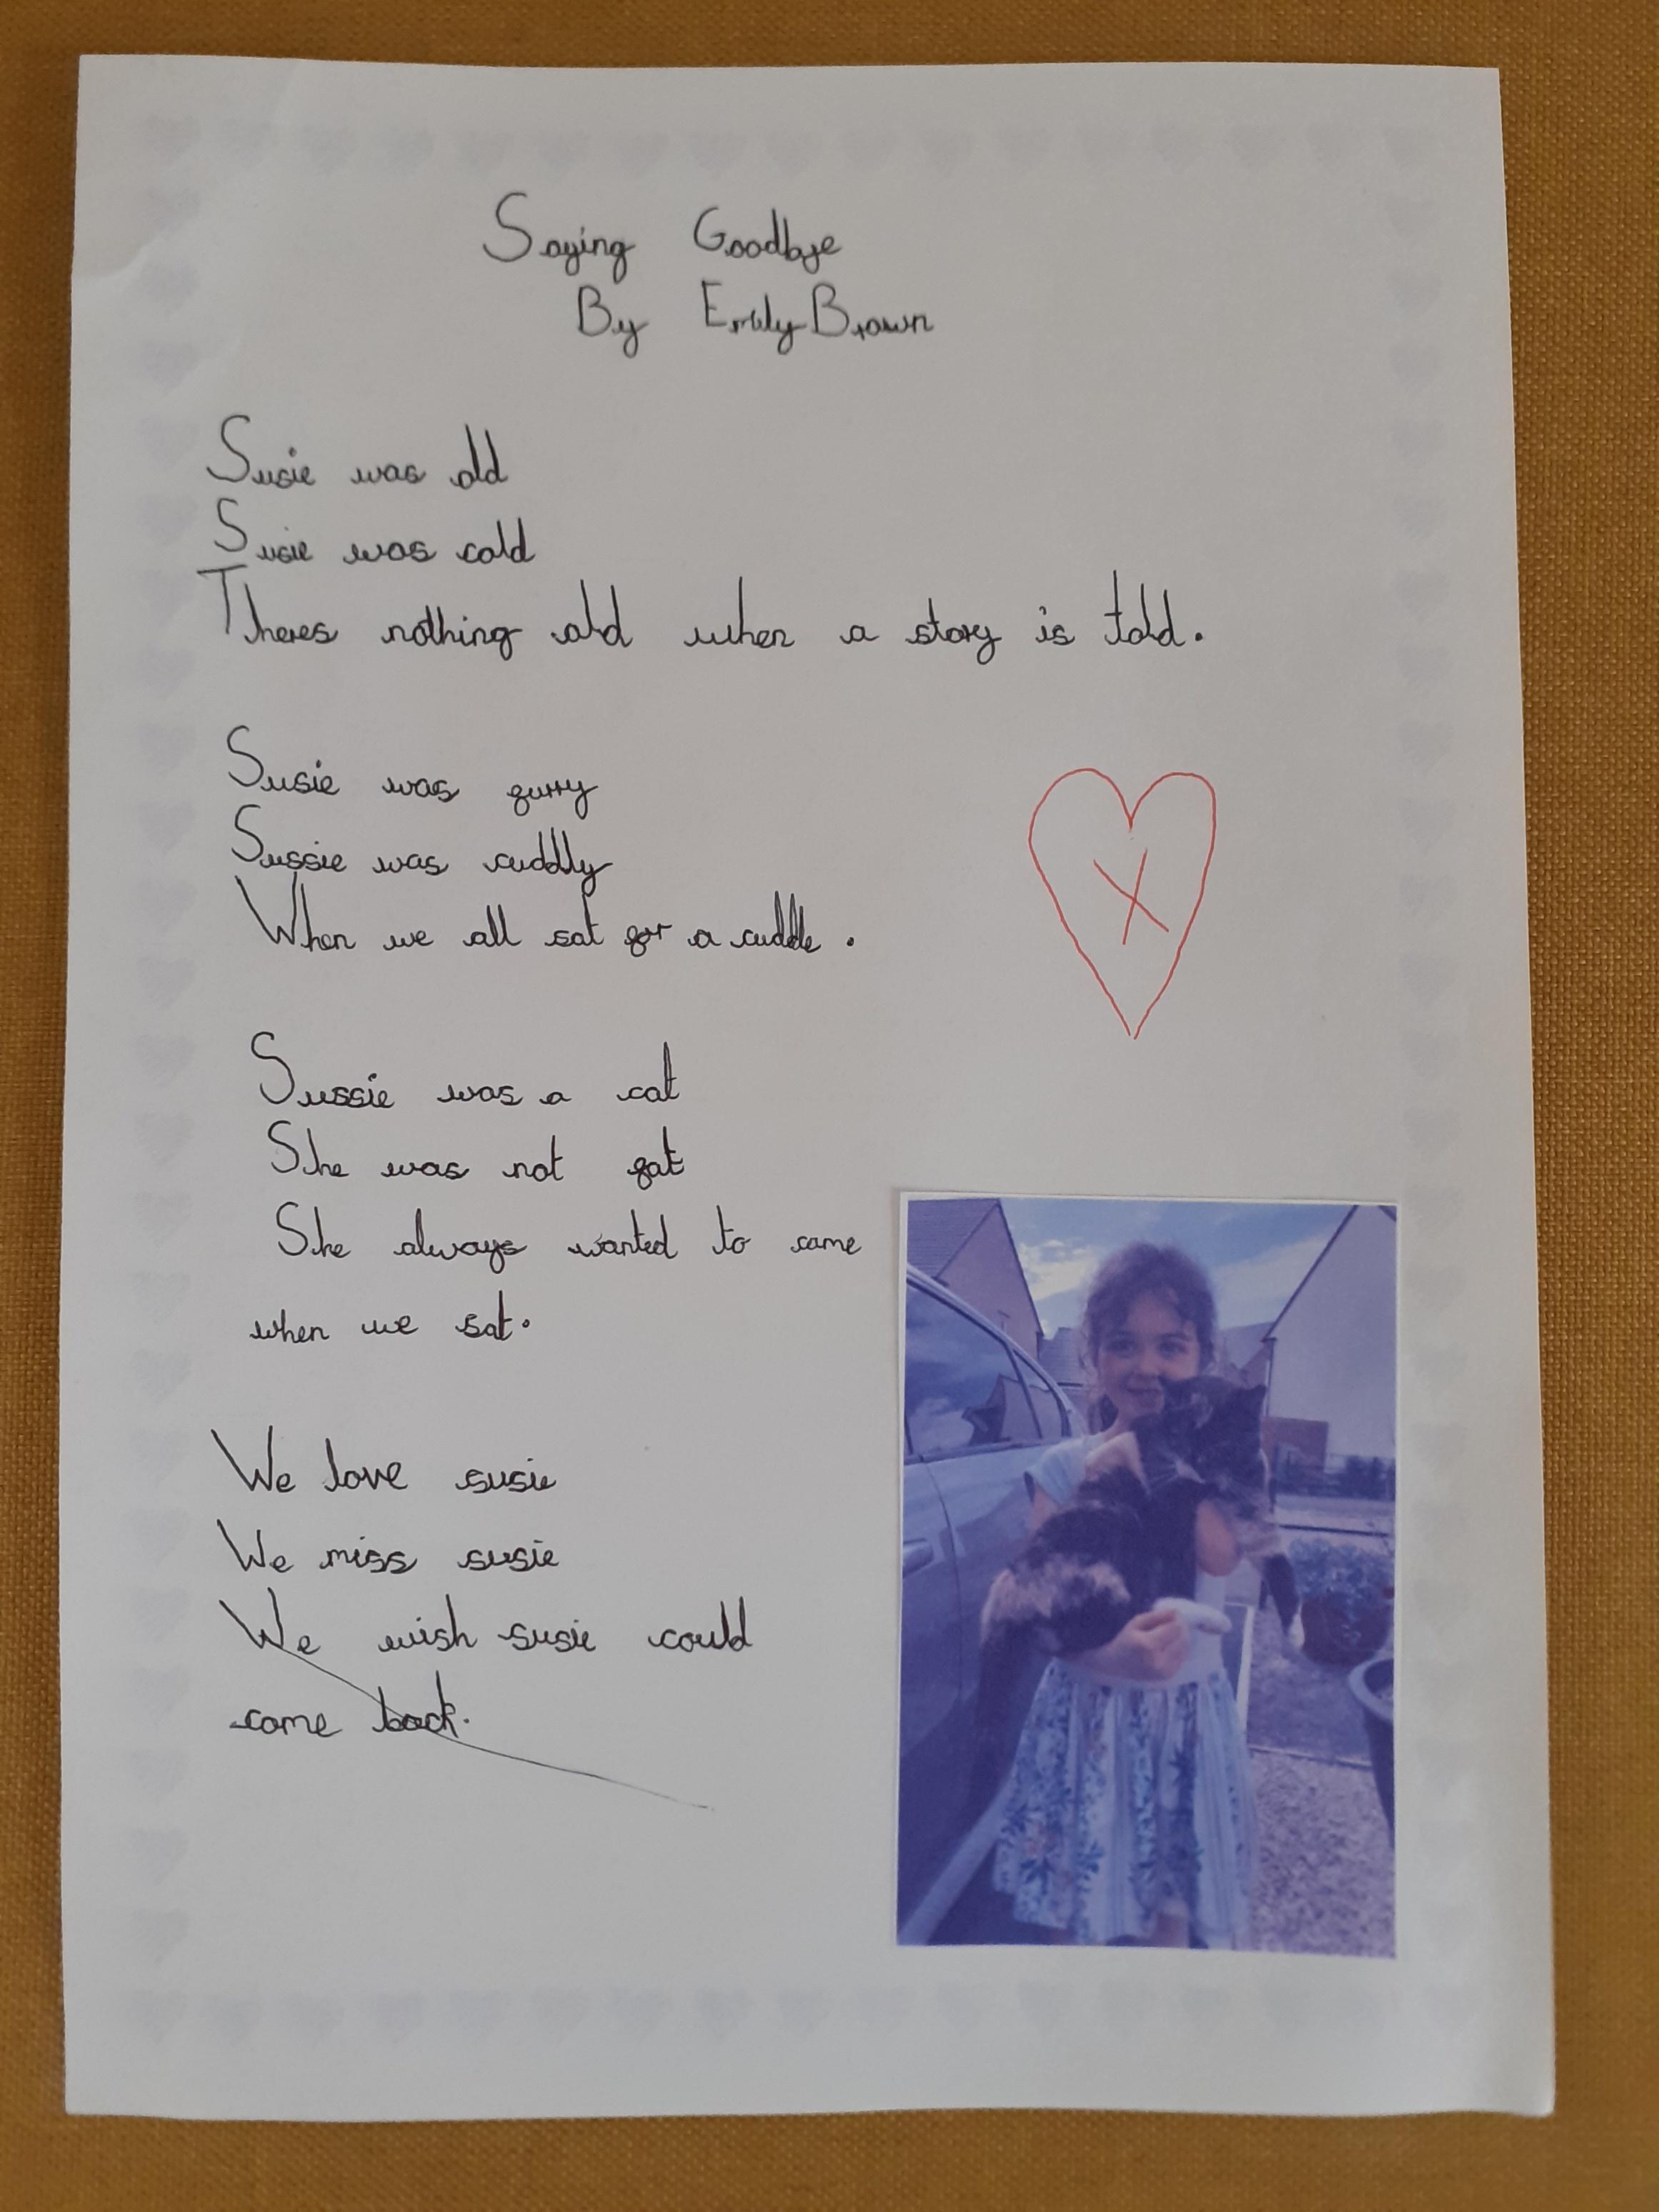 Saying Goodbye
By Emily Brown
Susie was old
Susie was cold
Theres nothing old when a story is told.
Susie was furry
Sussie was cuddly
When we all sat for a cuddle.
Sussie was a cat
She was not fat
She always wanted to come
when we sat.
We love susie
We miss susie
We wish susie could
come back.
X